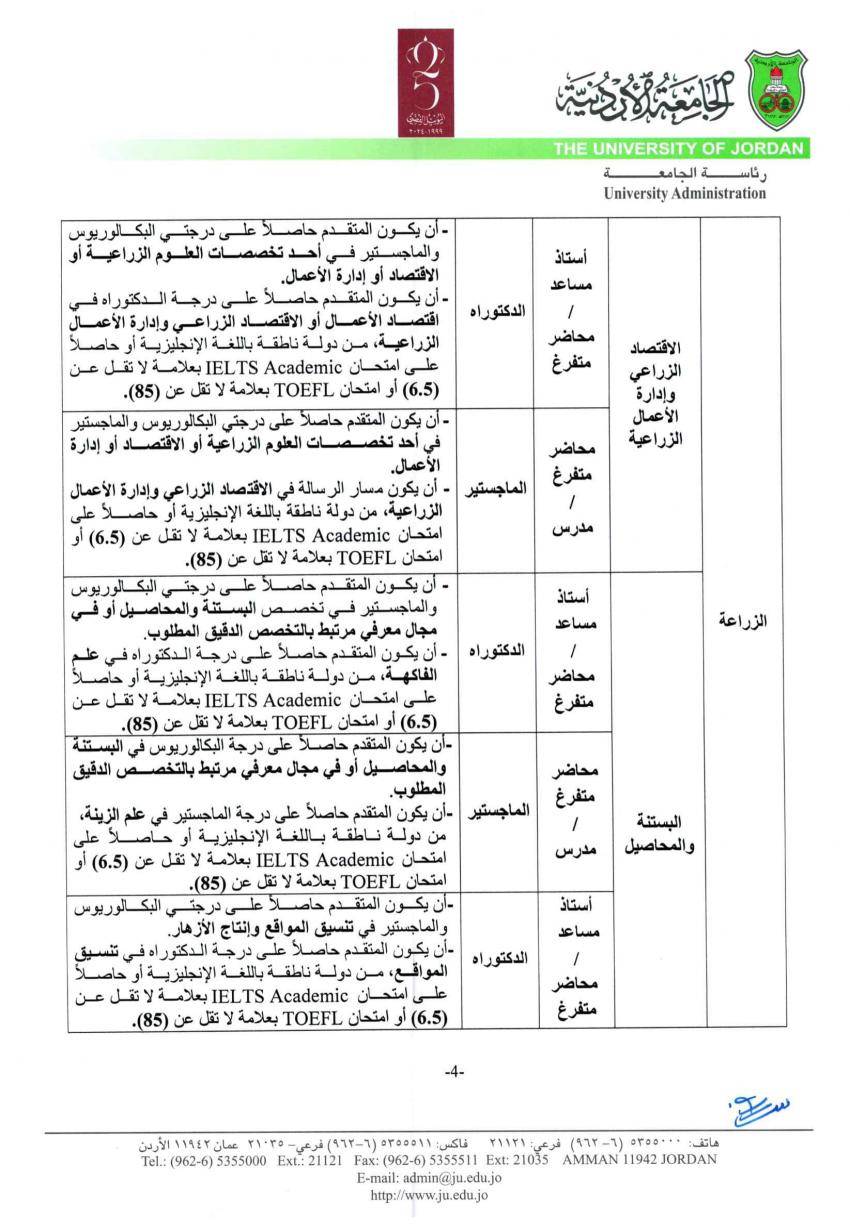 25
اليوبيل الفضي
١٩٩٩-٢٠٢٤
الجامعة الأردنية
THE UNIVERSITY OF JORDAN
رئاسة الجامعة
University Administration
الزراعة
الاقتصاد
الزراعي
وإدارة
الأعمال
الزراعية
أستاذ
مساعد
/
محاضر
متفرغ
الدكتوراه
- أن يكون المتقدم حاصلاً على درجتي البكالوريوس
والماجستير في أحد تخصصات العلوم الزراعية أو
الاقتصاد أو إدارة الأعمال.
- أن يكون المتقدم حاصلاً على درجة الدكتوراه في
اقتصاد الأعمال أو الاقتصاد الزراعي وإدارة الأعمال
الزراعية، من دولة ناطقة باللغة الإنجليزية أو حاصلاً
على امتحان IELTS Academic بعلامة لا تقل عن
(6.5) أو امتحان TOEFL بعلامة لا تقل عن (85).
محاضر
متفرغ
/
مدرس
الماجستير
- أن يكون المتقدم حاصلاً على درجتي البكالوريوس والماجستير
في أحد تخصصات العلوم الزراعية أو الاقتصاد أو إدارة
الأعمال.
- أن يكون مسار الرسالة في الاقتصاد الزراعي وإدارة الأعمال
الزراعية، من دولة ناطقة باللغة الإنجليزية أو حاصلاً على
امتحان IELTS Academic بعلامة لا تقل عن (6.5) أو
امتحان TOEFL بعلامة لا تقل عن (85).
البستنة
والمحاصيل
أستاذ
مساعد
/
محاضر
متفرغ
الدكتوراه
- أن يكون المتقدم حاصلاً على درجتي البكالوريوس
والماجستير في تخصص البستنة والمحاصيل أو في
مجال معرفي مرتبط بالتخصص الدقيق المطلوب.
- أن يكون المتقدم حاصلاً على درجة الدكتوراه في علم
الفاكهة، من دولة ناطقة باللغة الإنجليزية أو حاصلاً
على امتحان IELTS Academic بعلامة لا تقل عن
(6.5) أو امتحان TOEFL بعلامة لا تقل عن (85).
محاضر
متفرغ
/
مدرس
الماجستير
-أن يكون المتقدم حاصلاً على درجة البكالوريوس في البستنة
والمحاصيل أو في مجال معرفي مرتبط بالتخصص الدقيق
المطلوب.
-أن يكون المتقدم حاصلاً على درجة الماجستير في علم الزينة،
من دولة ناطقة باللغة الإنجليزية أو حاصلاً على
امتحان IELTS Academic بعلامة لا تقل عن (6.5) أو
امتحان TOEFL بعلامة لا تقل عن (85).
أستاذ
مساعد
/
محاضر
متفرغ
الدكتوراه
-أن يكون المتقدم حاصلاً على درجتي البكالوريوس
والماجستير في تنسيق المواقع وإنتاج الأزهار.
-أن يكون المتقدم حاصلاً على درجة الدكتوراه في تنسيق
المواقع، من دولة ناطقة باللغة الإنجليزية أو حاصلاً
على امتحان IELTS Academic بعلامة لا تقل عن
(6.5) أو امتحان TOEFL بعلامة لا تقل عن (85).
-4-
هاتف: ٥٣٥٥٠٠٠ (٦-٩٦٢) فرعي: ٢١١٢١ فاكس: ٥٣٥٥٥١١ (٦-٩٦٢) فرعي- ٢١٠٣٥ عمان ١١٩٤٢ الأردن
Tel.: (962-6) 5355000 Ext.: 21121 Fax: (962-6) 5355511 Ext: 21035 AMMAN 11942 JORDAN
E-mail: admin@ju.edu.jo
http://www.ju.edu.jo